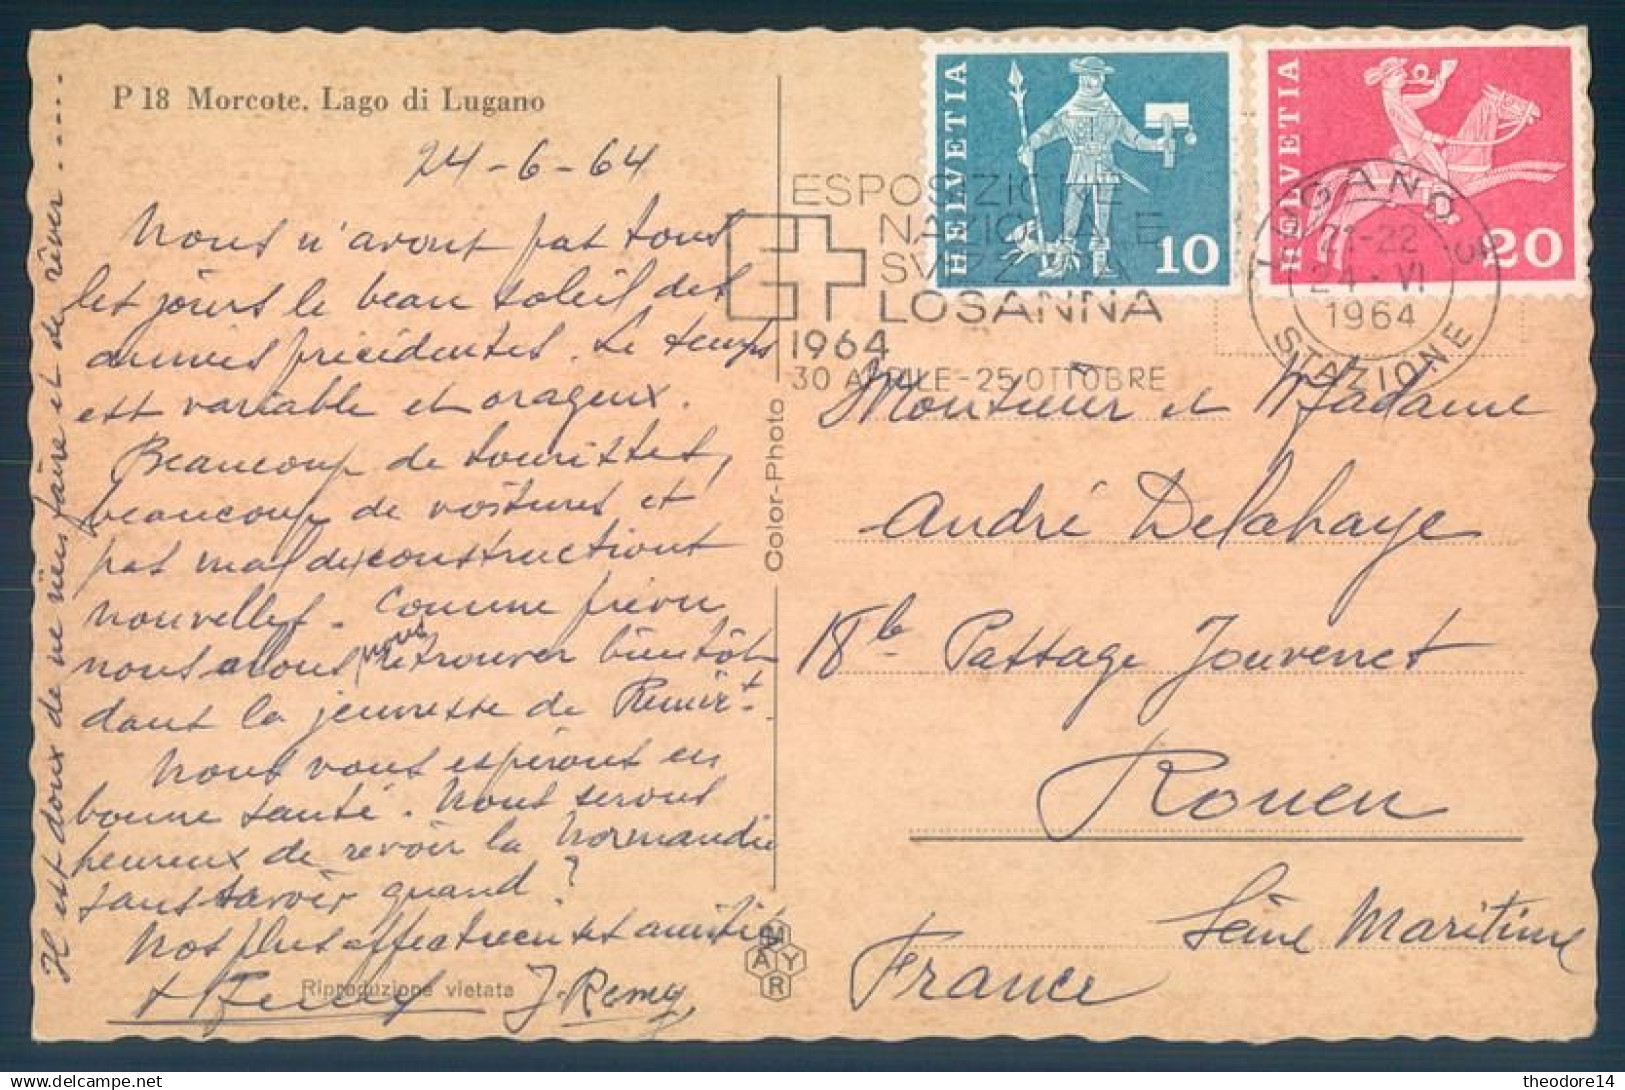 P 18 Morcote. Lago di Lugano
24-6-64
Nous n'avons pas tous
les jours le beau soleil des
années précédentes. Le temps
est variable et orageux.
Beaucoup de touristes,
beaucoup de voitures et
pas mal de constructions
nouvelles. Comme prévu
nous allons nous retrouver bientôt
dans la jeunesse de
Nous vous espérons en
bonne santé. Nous serons
heureux de revoir la Normandie
sans savoir quand?
Nos plus affectueuses amitiés
J. Remy
Il est doux de ne rien faire et de rêver.....
Riproduzione vietata
Color-Photo
MAYR
HELVETIA
10
HELVETIA
20
ESPOSIZIONE
NAZIONALE
SVIZZERA
LOSANNA
1964
30 APRILE-25 OTTOBRE
LUGANO 3
21-22
24·VI
1964
STAZIONE
Monsieur et Madame
André Delahaye
18b Passage Jouvenet
Rouen
Seine Maritime
France
theodore14